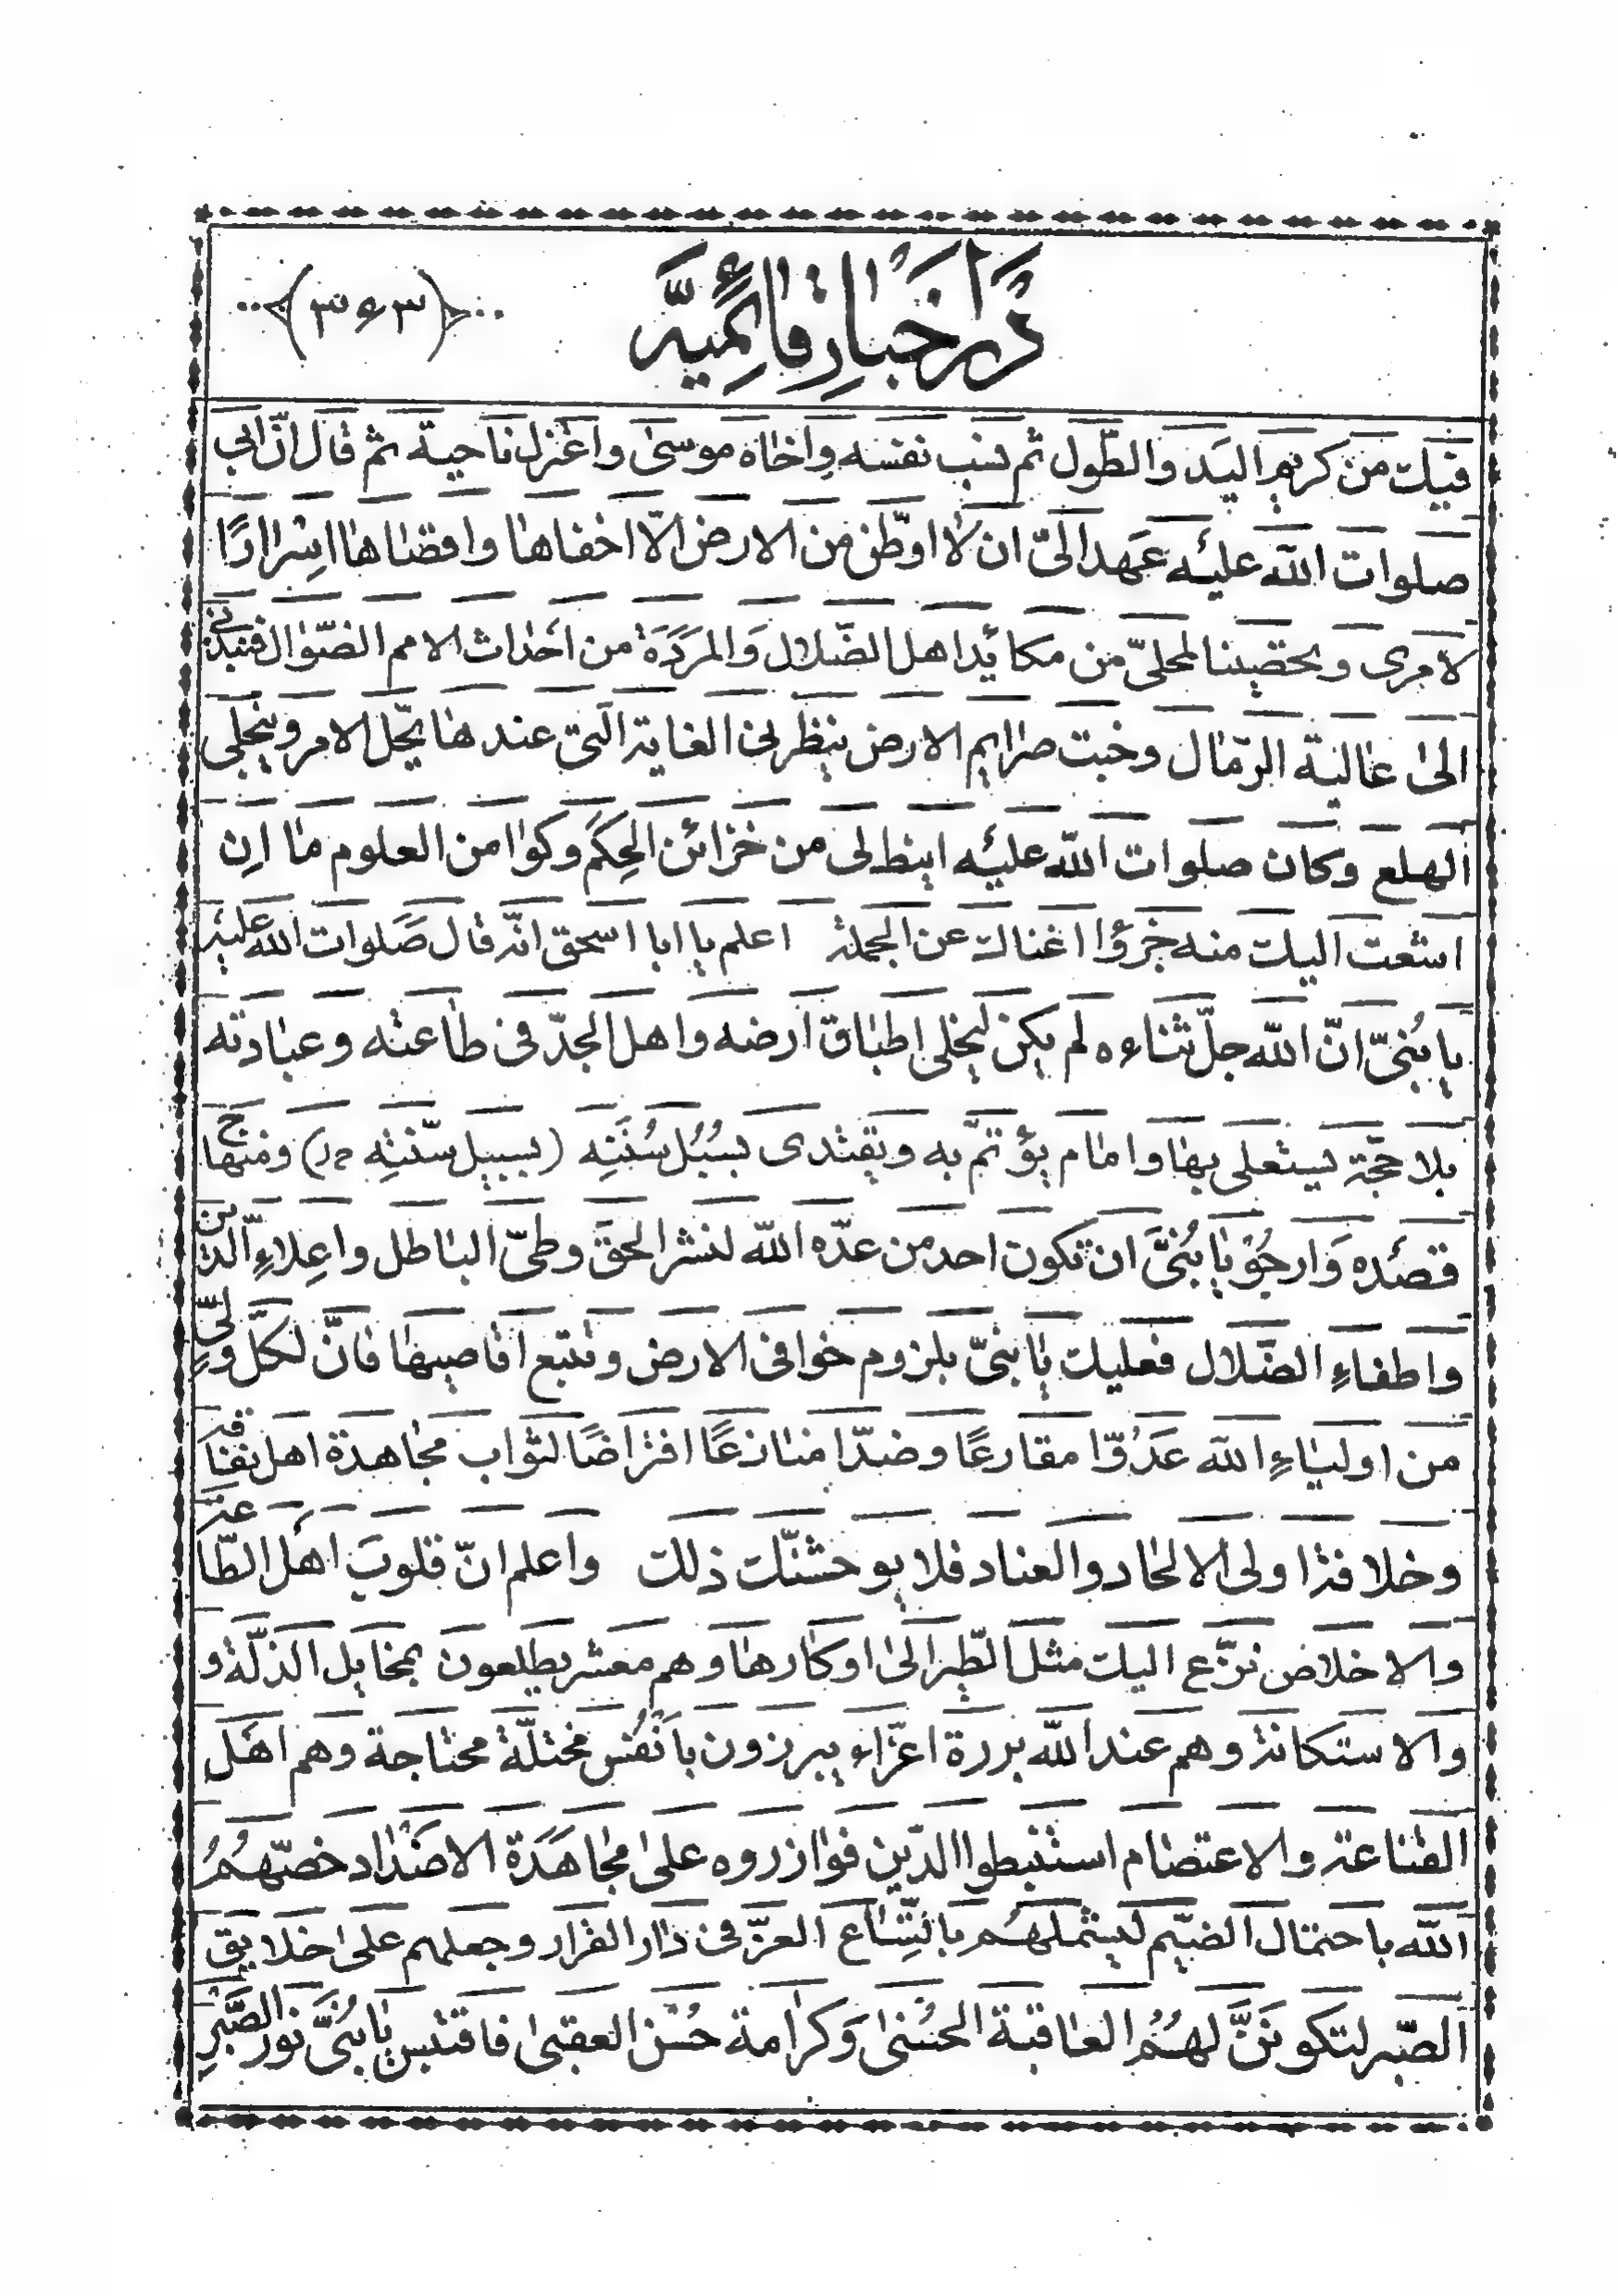 در اخبار قائمیّه
(۳۶۳)
فیك من كریم الید والطّول ثم نسب نفسه واخاه موسی واعتزل ناحیة ثم قال انّ ابی
صلوات الله علیه عهد الیّ ان لا اوطّن من الارض الّا اخفاها واقضاها اسرارًا
لامری وتحصینا لمحلیّ من مكائد اهل الضّلال وَالمَرَدَة من احداث الامم الضّوال فنبذنی
الی عالیة الرّمال وخبت صرایم الارض ینظرنی الغایة الّتی عندها یحّل الامر وینجلی
الهلع وكان صلوات الله علیه انبط لی من خزائن الحِكَم وكوامن العلوم ما ان
اشعت الیك منه جزؤا اغناك عن الجملة اعلم یا ابا اسحق انّه قال صَلوات الله علیه
یا بُنیّ انّ الله جلّ ثناءه لم یكن لیخلی اطباق ارضه واهل الجدّ فی طاعته وعبادته
بلا حجّة یستعلی بها وامام یؤتمّ به ویقتدی بسُبُل سُنَنِه (بسبیل سنّتِه ح‌ر) ومنهاج
قصدْه وَارجُوْ یا بُنیَّ ان تكون احد من عدّه الله لنشر الحقّ وطیّ الباطل واعِلاءِ الدّین
واطفاءِ الضّلال فعلیك یا بنیّ بلزوم خوافی الارض وتتبع اقاصیها فانّ لكلّ ولیّ
من اولیاءِ الله عَدُوّا مقارعًا وضدّا منازعًا افتراضًا لثواب مجاهدة اهل نفاقه
وخلافة اولی الالحاد والعناد فلا یوحشنّك ذلك واعلم انّ قلوبَ اهل الطّاعة
والاخلاص نزّع الیك مثل الطّیر الی اوكارها وهم معشر یطلعون بمخایل الذلّة و
والاستكانة وهم عند الله بررة اعزّاء یبرزون بانفُس مختلّة محتاجة وهم اهل
القناعة والاعتصام استنبطوا الدّین فوازروه علی مجاهَدَة الاضْداد خصّهُمُ
الله باحتمال الضیّم لیشملهُم باتّساع العزّ فی دار القرار وجعلهم علی خلایق
الصّبر لتكوننَّ لهُمُ العاقبة الحُسنی وَكرامة حُسْن العقبی فاقتبس یا بُنیَّ نور الصَّبرِ